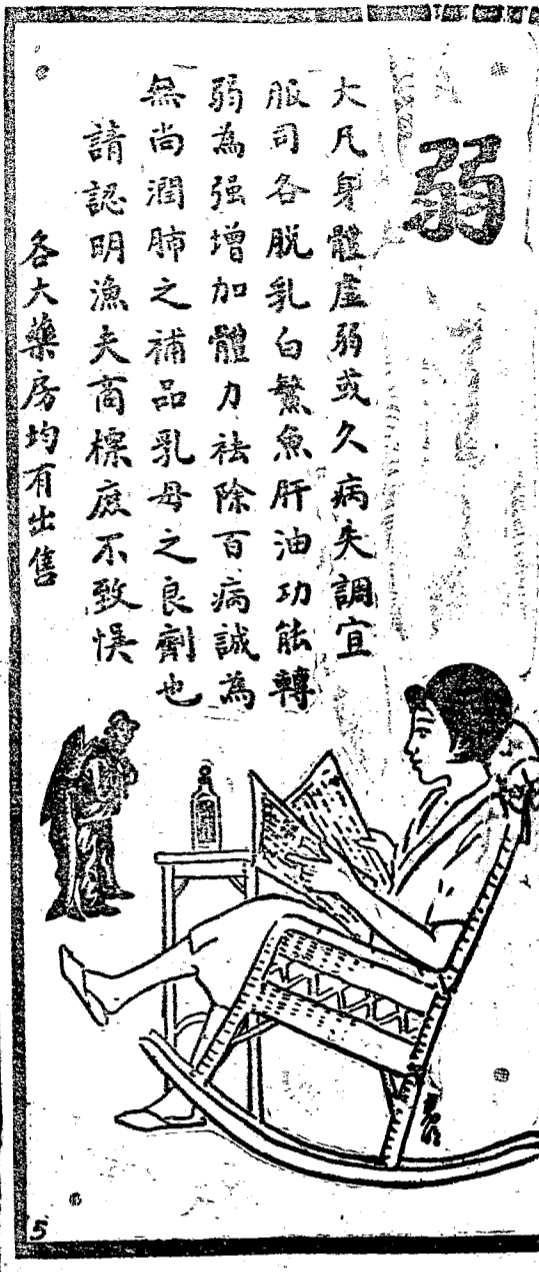 弱
大凡身體虛弱或久病失調宜
服司各脱乳白鰵魚肝油功能轉
弱為强增加體力袪除百病誠為
無尚潤肺之補品乳母之良劑也
請認明漁夫商標庶不致悮
各大藥房均有出售
5